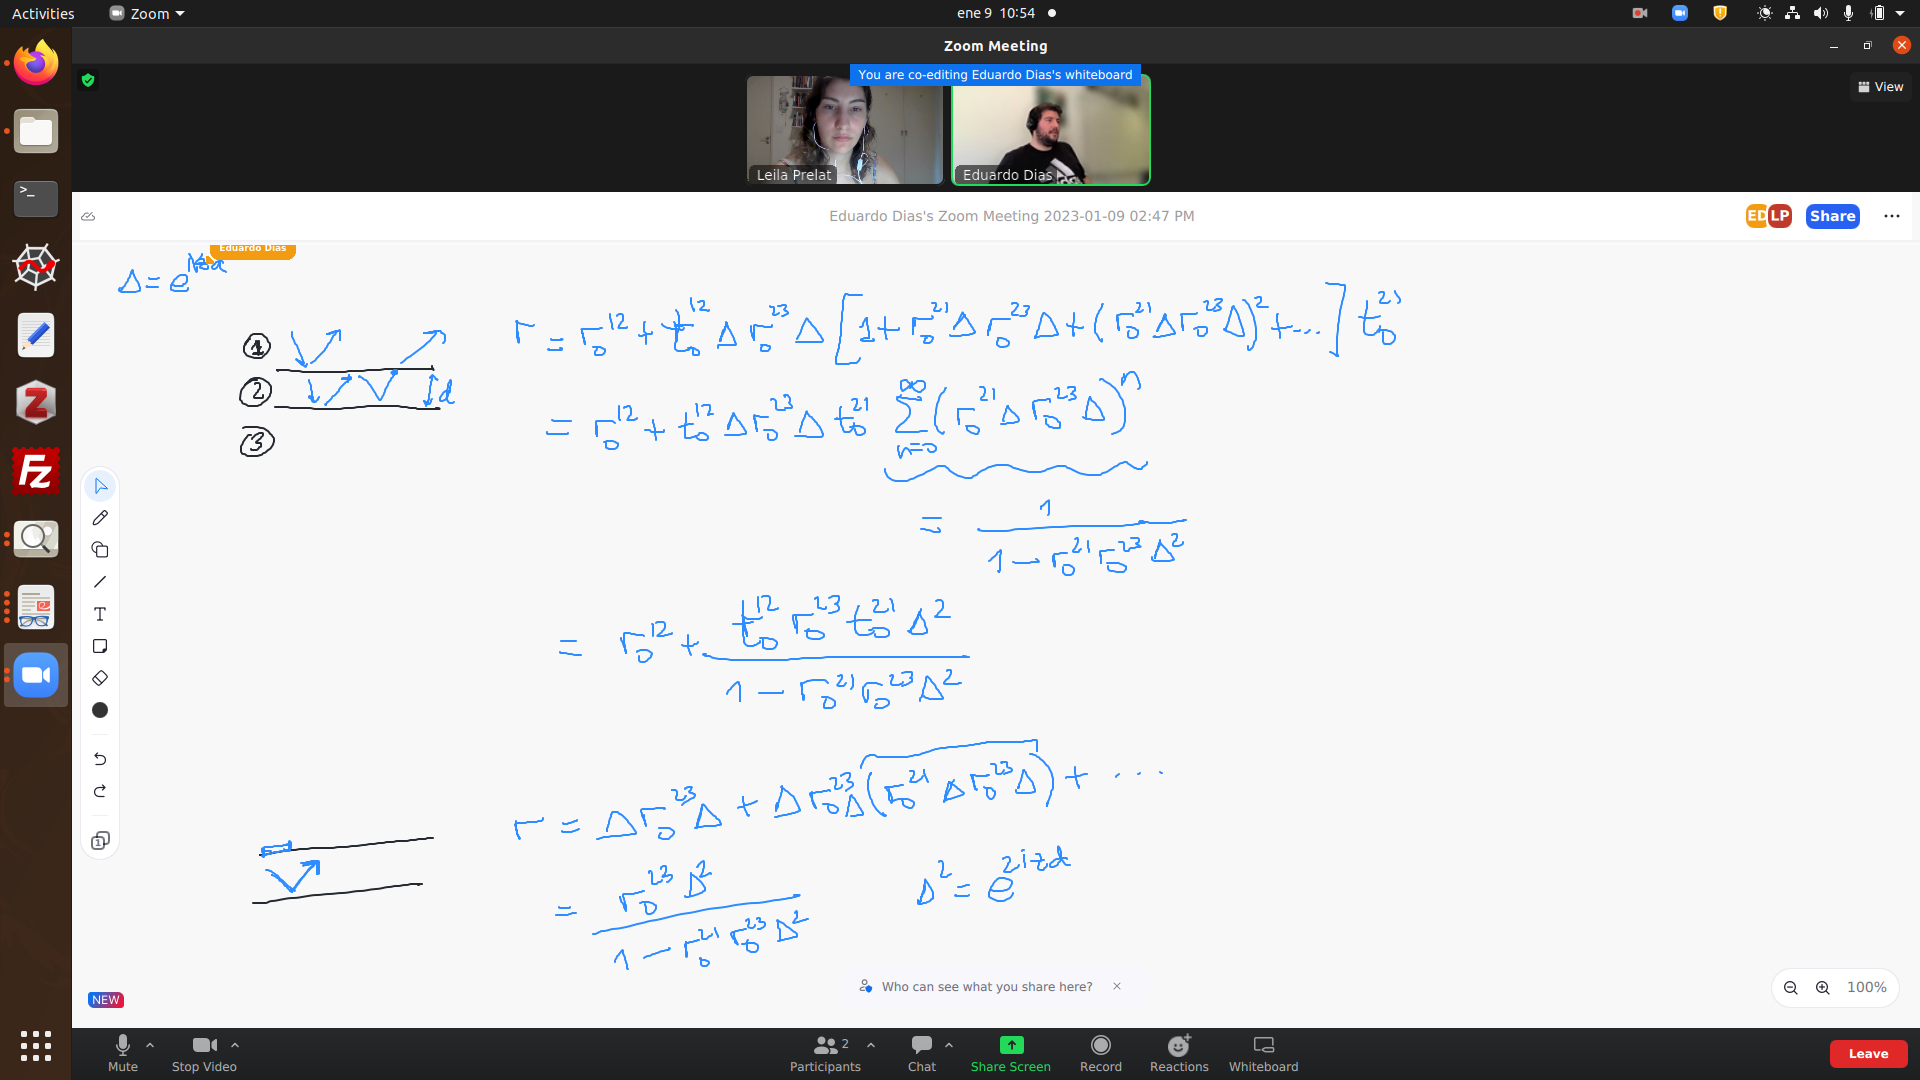 Activities Zoom ene 9 10:54
Zoom Meeting
You are co-editing Eduardo Dias's whiteboard
View
Leila Prelat Eduardo Dias
Eduardo Dias's Zoom Meeting 2023-01-09 02:47 PM ED LP Share ...
Eduardo Dias
Δ = e
① r = r₀¹² + t₀¹² Δ r₀²³ Δ [1 + r₀²¹ Δ r₀²³ Δ + (r₀²¹ Δ r₀²³ Δ)² + ...] t₀²¹
② d = r₀¹² + t₀¹² Δ r₀²³ Δ t₀²¹ ∑_{n=0}^{∞} (r₀²¹ Δ r₀²³ Δ)ⁿ
③
= 1 / (1 - r₀²¹ r₀²³ Δ²)
= r₀¹² + (t₀¹² r₀²³ t₀²¹ Δ²) / (1 - r₀²¹ r₀²³ Δ²)
r = Δ r₀²³ Δ + Δ r₀²³ Δ (r₀²¹ Δ r₀²³ Δ) + ...
= (r₀²³ Δ²) / (1 - r₀²¹ r₀²³ Δ²) Δ² = e^{2izd}
Who can see what you share here? ×
NEW 100%
Mute Stop Video Participants 2 Chat Share Screen Record Reactions Whiteboard Leave